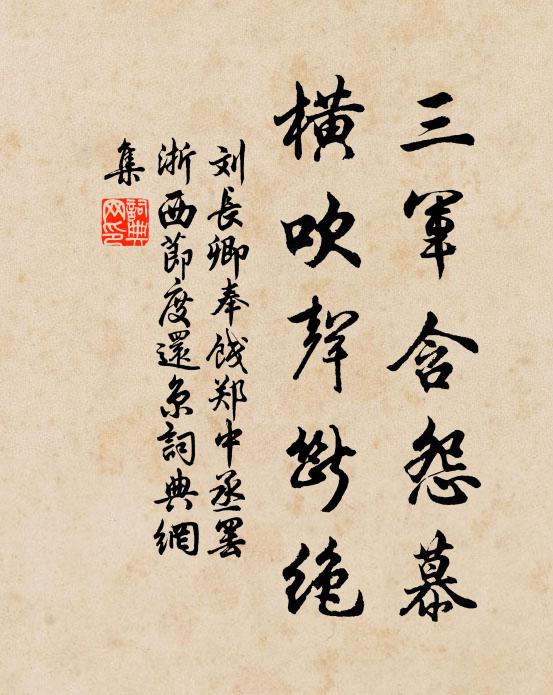 三軍含怨慕
橫吹聲斷絶
刘長卿奉餞郑中丞罢
浙西節度還京詞典網
集
詞典
网印